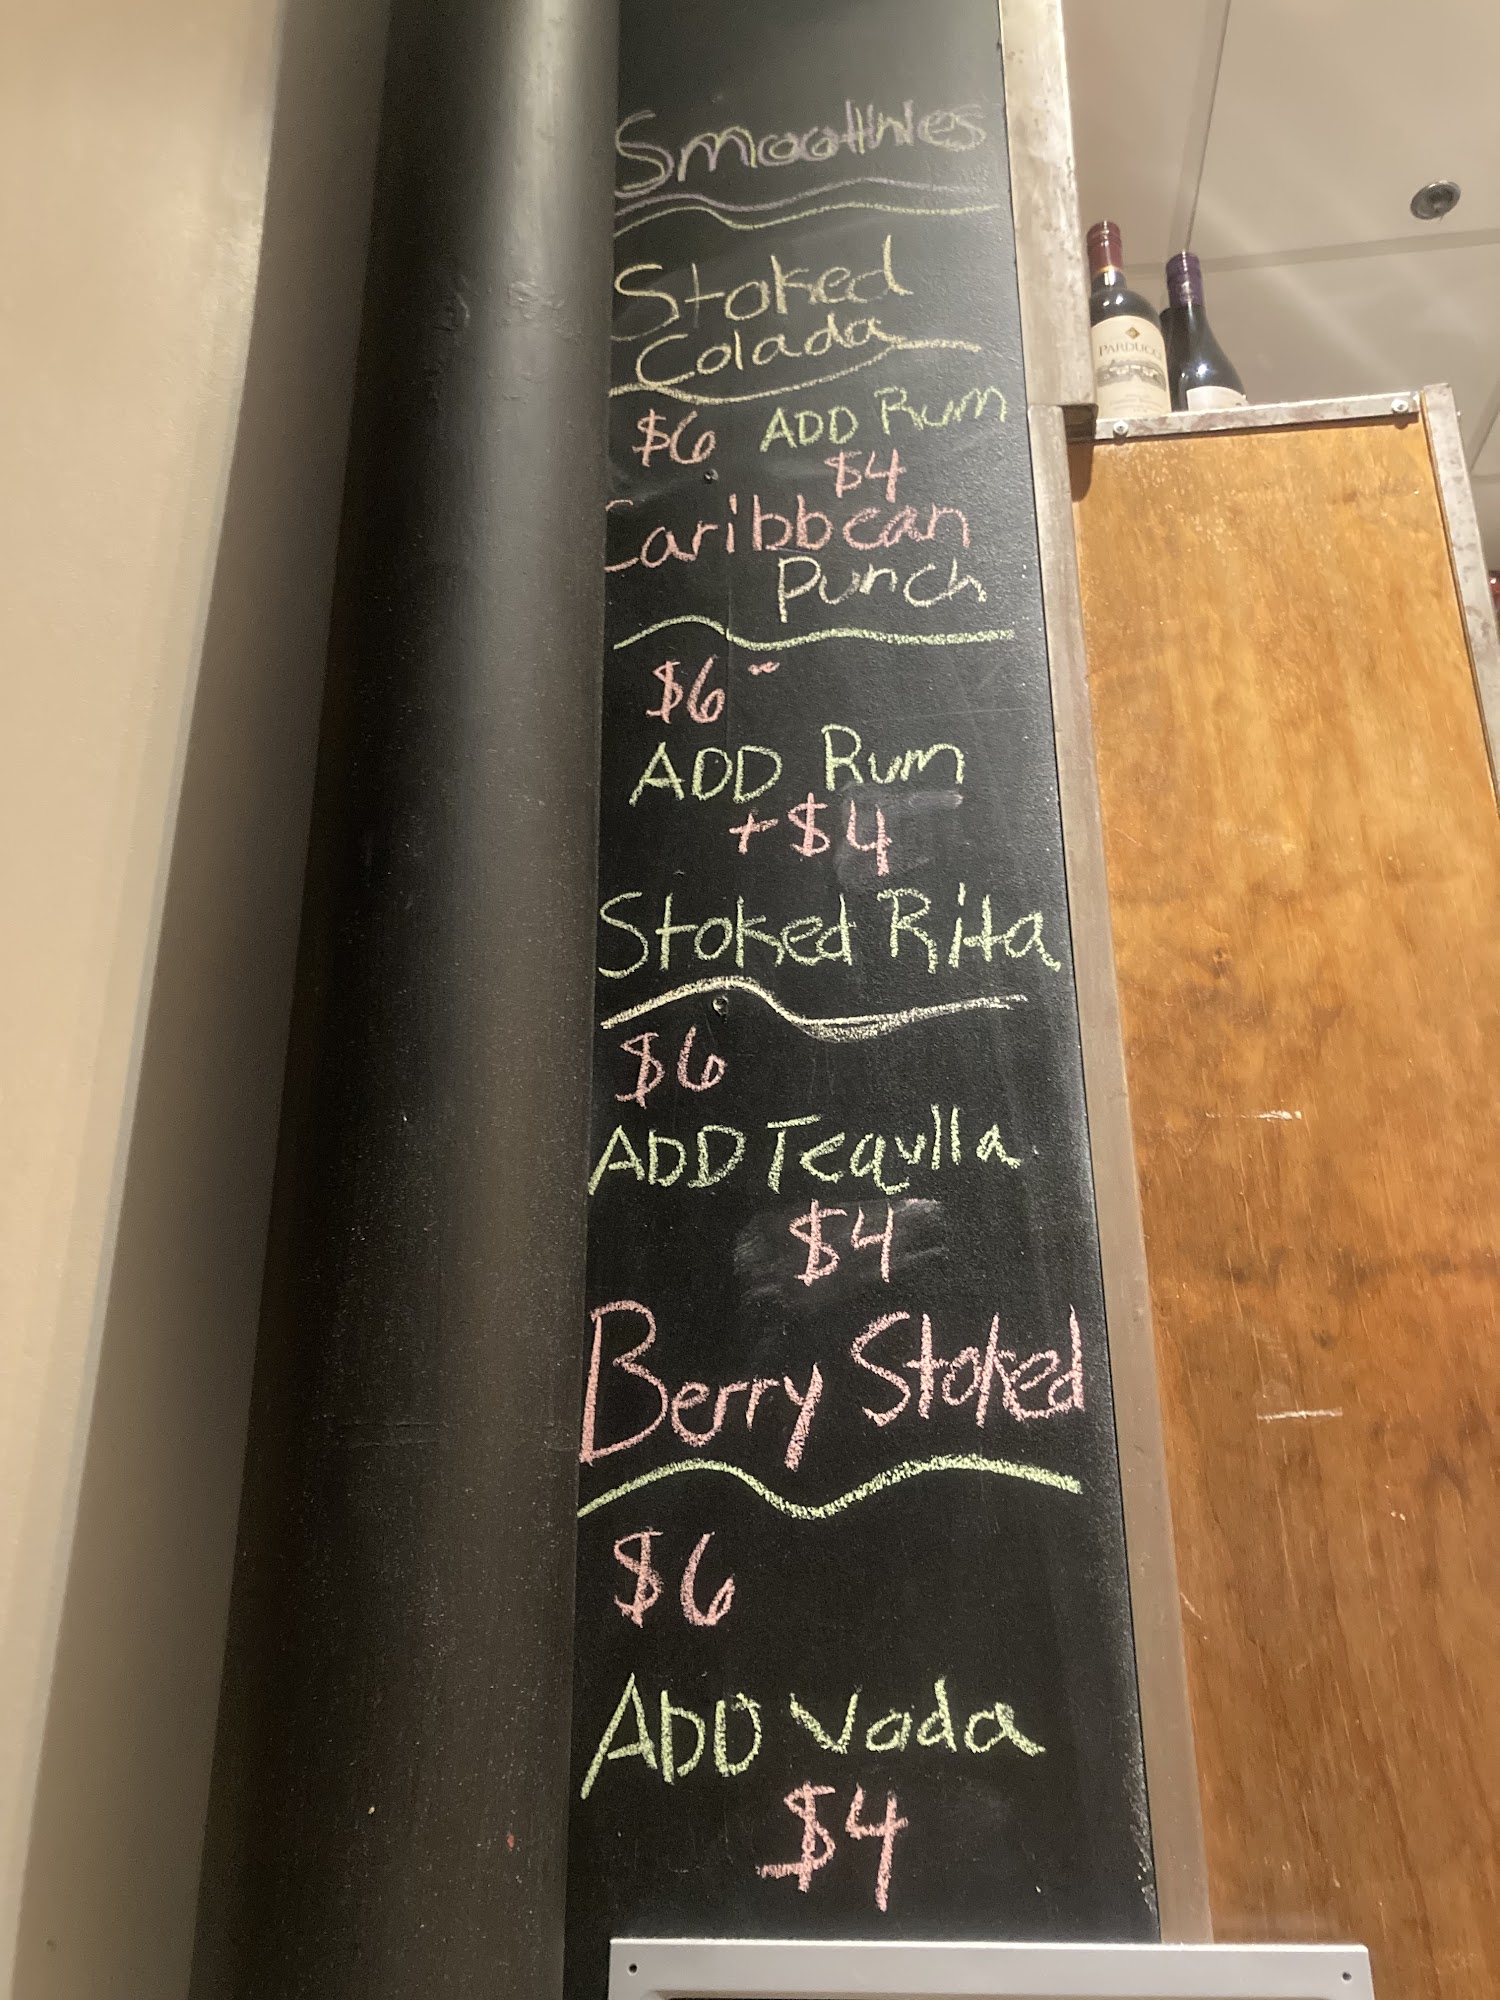 Smoothies
Stoked
Colada
$6 ADD Rum
$4
Caribbean
Punch
$6
ADD Rum
+$4
Stoked Rita
$6
ADD Tequlla
$4
Berry Stoked
$6
ADD Voda
$4
PARDUCCI